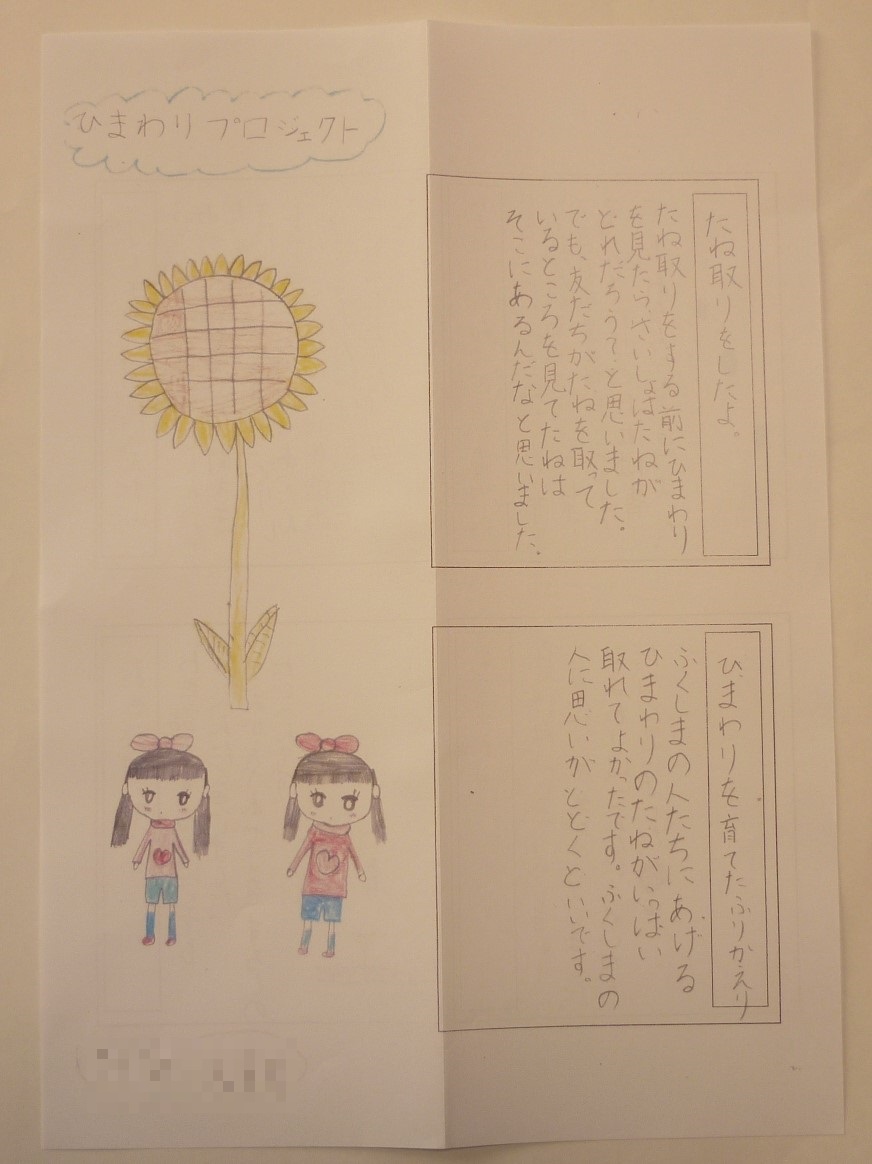 ひまわりプロジェクト
たね取りをしたよ。
たね取りをする前にひまわり
を見たら、さいしょはたねが
どれだろう？と思いました。
でも、友だちがたねを取って
いるところを見てたねは
そこにあるんだなと思いました。
ひまわりを育てたふりかえり
ふくしまの人たちにあげる
ひまわりのたねがいっぱい
取れてよかったです。ふくしまの
人に思いがとどくといいです。